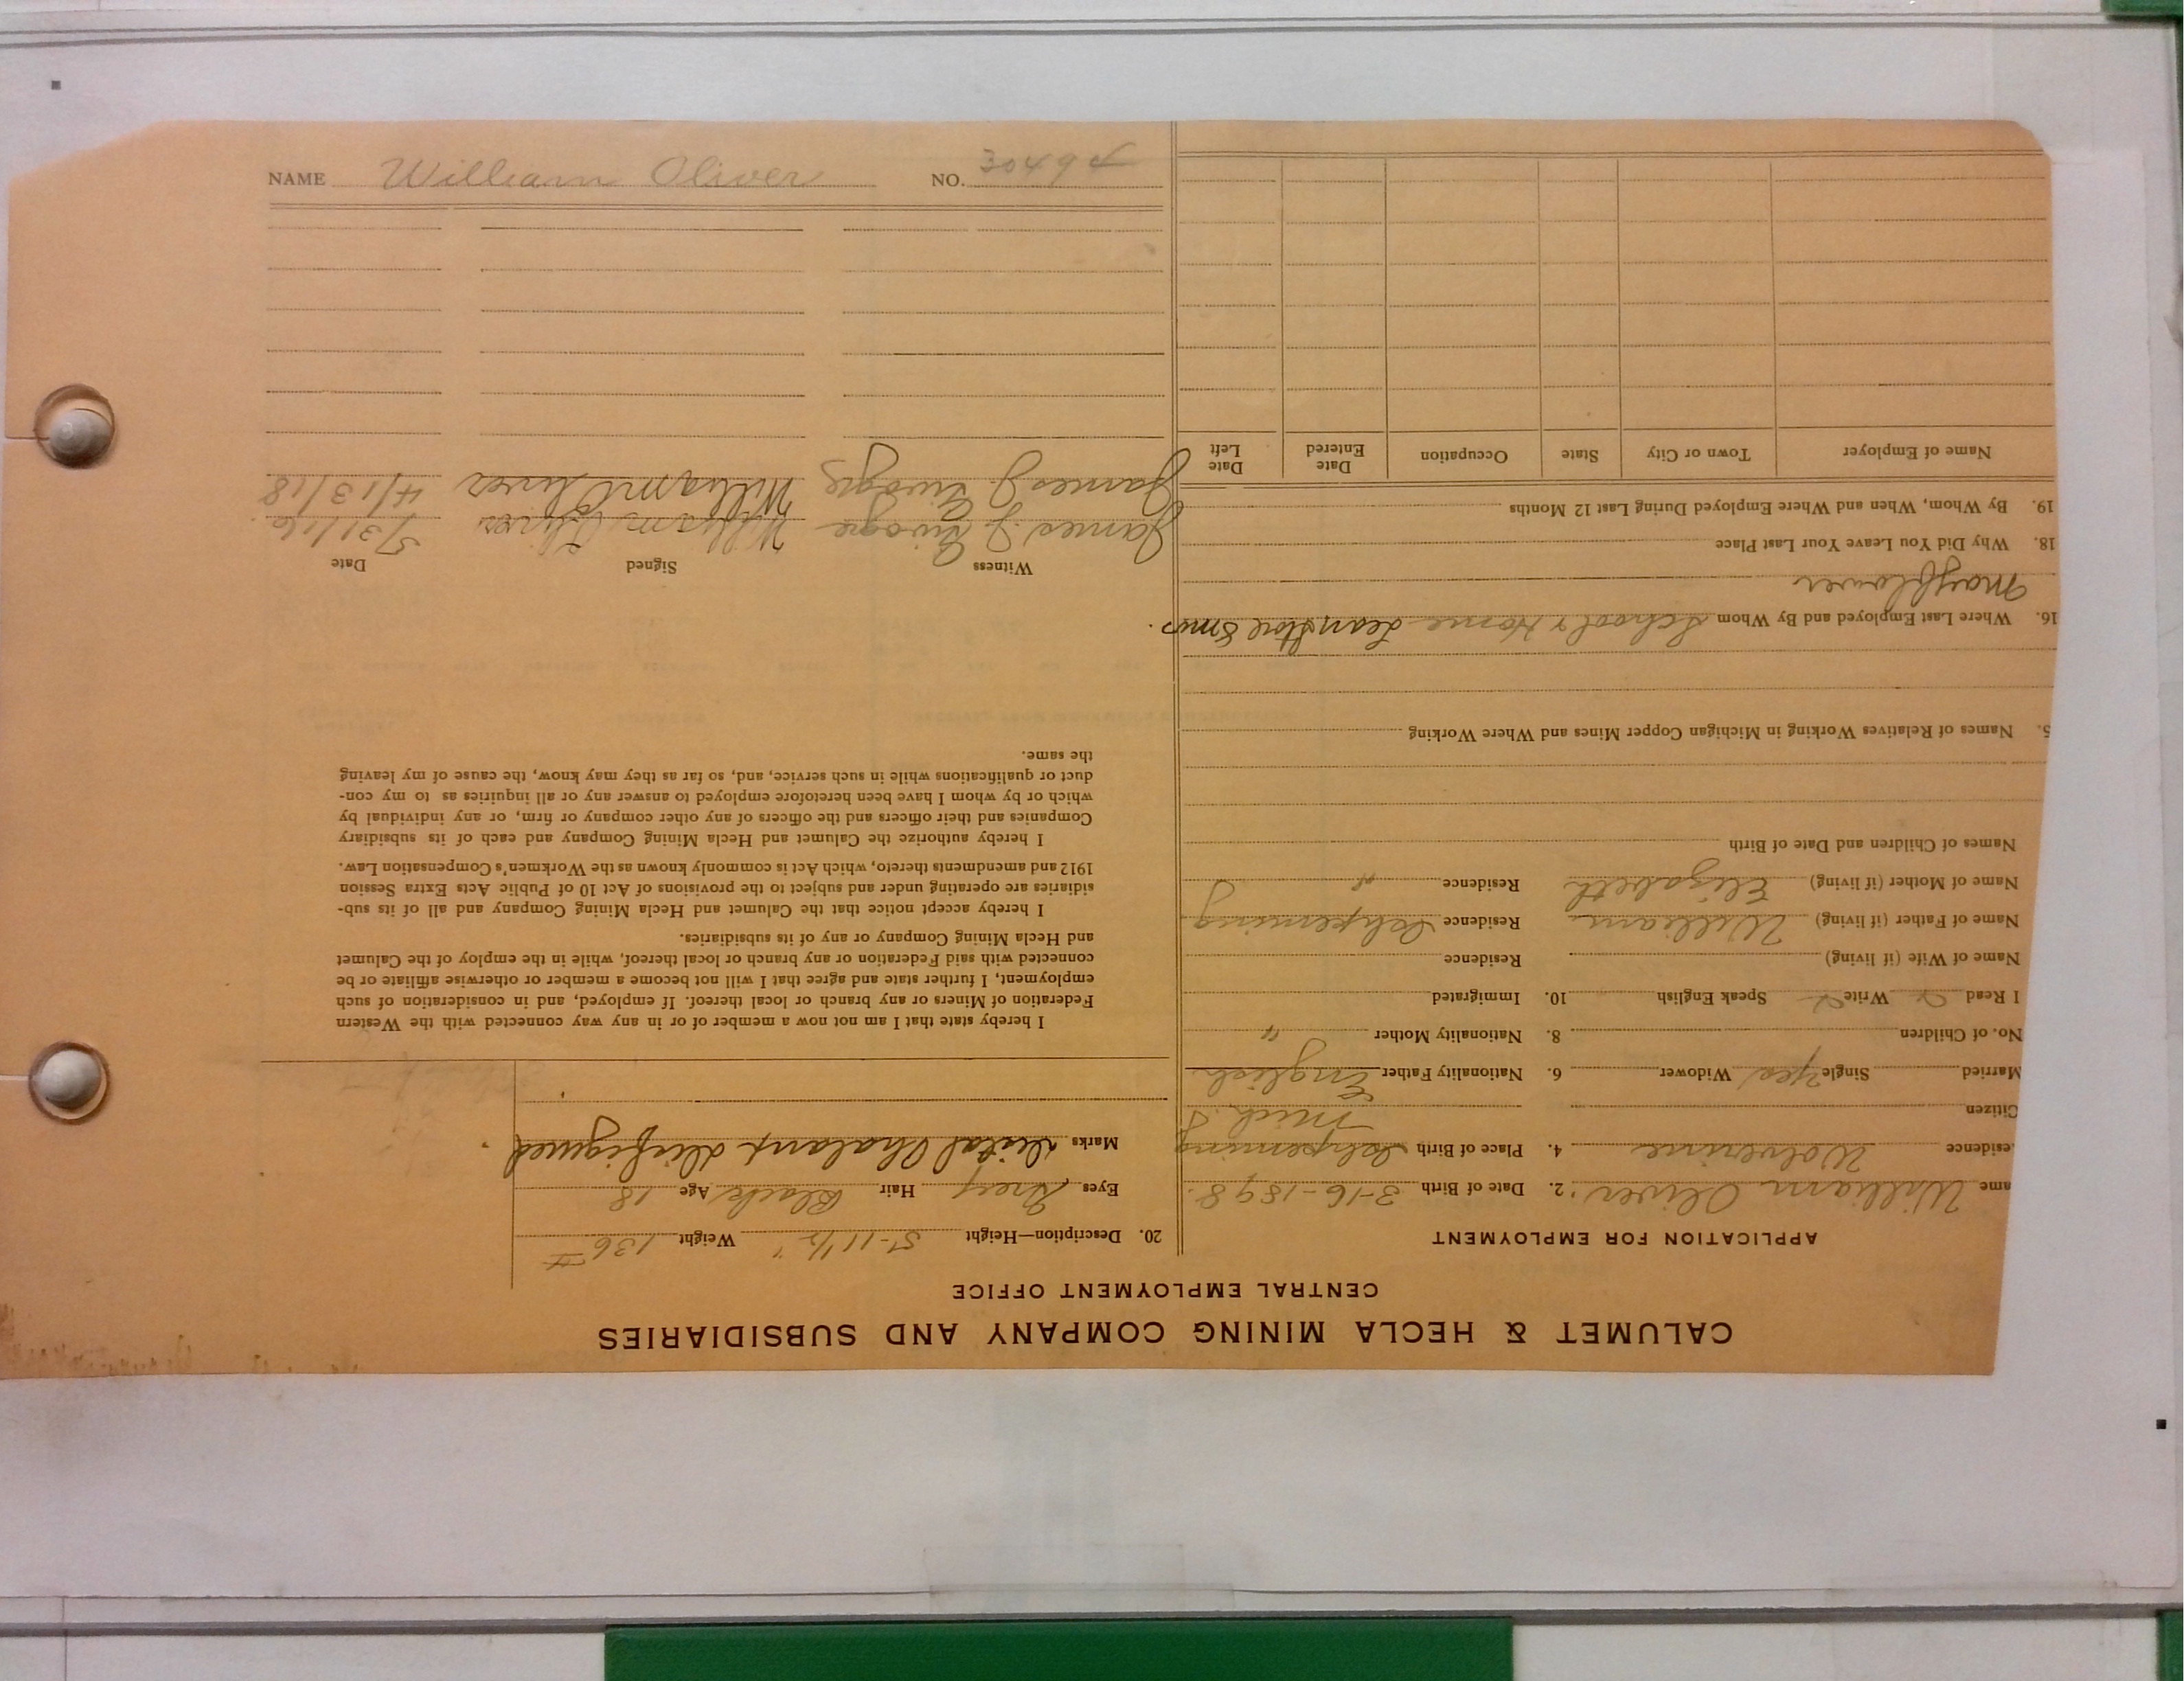 CALUMET & HECLA MINING COMPANY AND SUBSIDIARIES
CENTRAL EMPLOYMENT OFFICE
APPLICATION FOR EMPLOYMENT
ame William Oliver 2. Date of Birth 3-16-1898.
esidence Wolverine 4. Place of Birth Ishpeming
Citizen Mich
Married Single Yes Widower 6. Nationality Father English
No. of Children 8. Nationality Mother "
I Read Write Speak English 10. Immigrated
Name of Wife (if living) Residence
Name of Father (if living) William Residence Ishpeming
Name of Mother (if living) Elizabeth Residence "
Names of Children and Date of Birth
5. Names of Relatives Working in Michigan Copper Mines and Where Working
16. Where Last Employed and By Whom School & Home Lean Store 8 mos.
Mayflower
18. Why Did You Leave Your Last Place
19. By Whom, When and Where Employed During Last 12 Months
Name of Employer Town or City State Occupation Date Entered Date Left
20. Description—Height 5'-11 1/2" Weight 136 #
Eyes Grey Hair Black Age 18
Marks disfigured
I hereby state that I am not now a member of or in any way connected with the Western
Federation of Miners or any branch or local thereof. If employed, and in consideration of such
employment, I further state and agree that I will not become a member or otherwise affiliate or be
connected with said Federation or any branch or local thereof, while in the employ of the Calumet
and Hecla Mining Company or any of its subsidiaries.
I hereby accept notice that the Calumet and Hecla Mining Company and all of its sub-
sidiaries are operating under and subject to the provisions of Act 10 of Public Acts Extra Session
1912 and amendments thereto, which Act is commonly known as the Workmen's Compensation Law.
I hereby authorize the Calumet and Hecla Mining Company and each of its subsidiary
Companies and their officers and the officers of any other company or firm, or any individual by
which or by whom I have been heretofore employed to answer any or all inquiries as to my con-
duct or qualifications while in such service, and, so far as they may know, the cause of my leaving
the same.
Witness Signed Date
James J. William Oliver 5/31/16
James J. William Oliver 4/13/18
NAME William Oliver NO. 30494